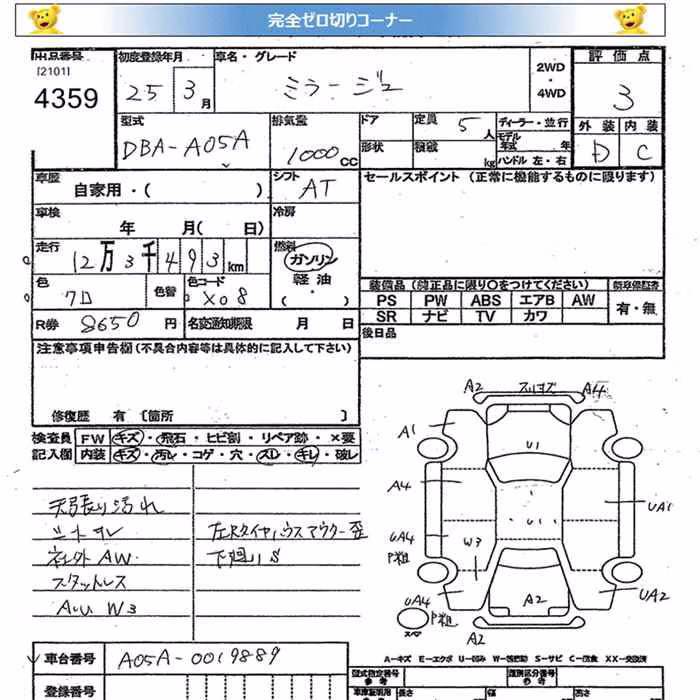 完全ゼロ切りコーナー
出品番号 初度登録年月 車名・グレード 2WD・4WD 評価点
[2101]
4359 25 3月 ミラージュ 3
型式 排気量 ドア 定員 5人 ディーラー・並行 外装 内装
DBA-A05A 1000cc 形状 積載 kg モデル年式 年 D C
ハンドル 左・右
車歴 自家用・( ) シフト AT セールスポイント (正常に機能するものに限ります)
車検 年 月( 日) 冷房
走行 12万3千493km 燃料 ガソリン・軽油・( )
色 クロ 色替 色コード X08
装備品(純正品に限り○をつけてください)
PS PW ABS エアB AW 有・無
SR ナビ TV カワ
R券 8650円 名変通知期限 月 日 後日品
注意事項申告欄(不具合内容等は具体的に記入して下さい)
修復歴 有 [箇所 ]
検査員 FW キズ・飛石・ヒビ割・リペア跡・×要
記入欄 内装 キズ・汚レ・コゲ・穴・スレ・キレ・破レ
天張り汚れ
シートスレ 左Rタイヤハウスアウター歪
社外AW. 下廻りS
スタットレス
A.u W3
A2 スリキズ A4
A1 U1
A4 U1 UA1
UA4 P粗 W3
UA4 P粗 A2 UA2
スペア A2
A-キズ E-エクボ U-凹み W-補修跡 S-サビ C-腐食 XX-交換済
車台番号 A05A-0019889
型式指定番号 類別区分番号
登録番号 長さ 幅 高さ